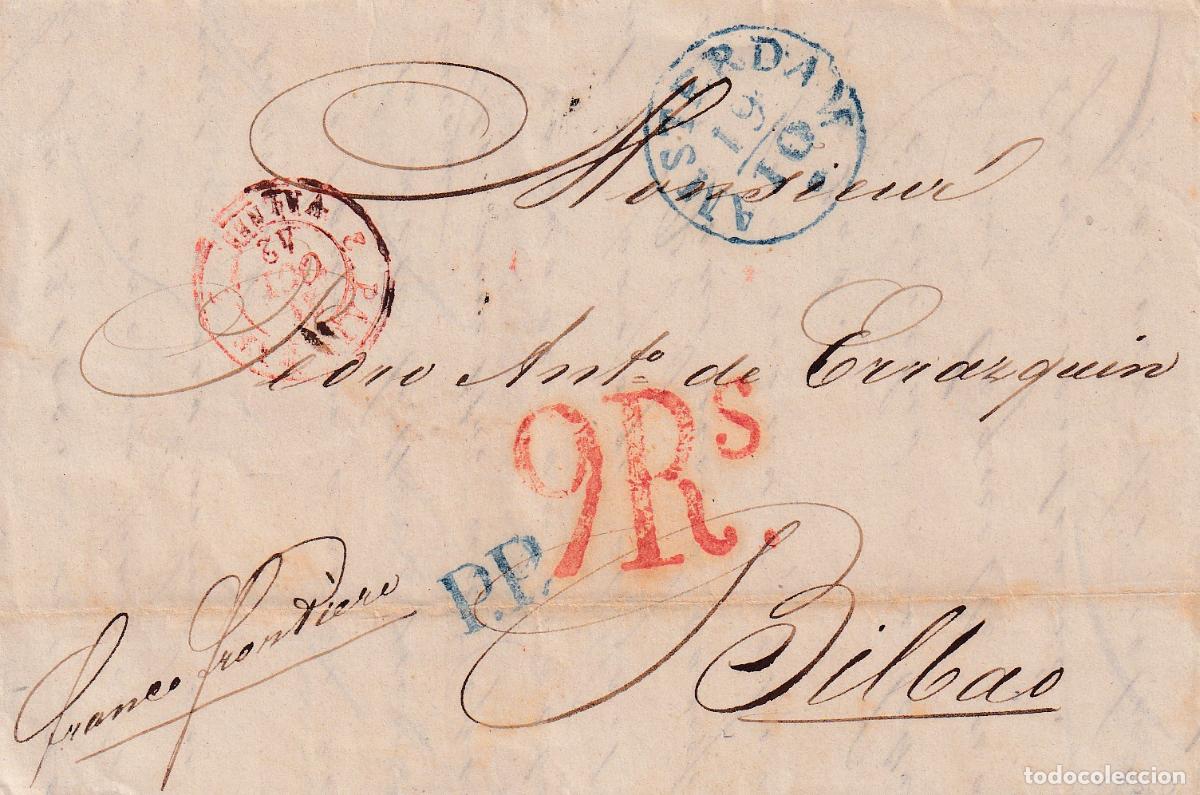 AMSTERDAM
19
10
Monsieur
2 VALEN
42
OCT
Pedro Ant.º de Errazquin
9Rs.
P.P.
franco frontière
Bilbao
todocoleccion